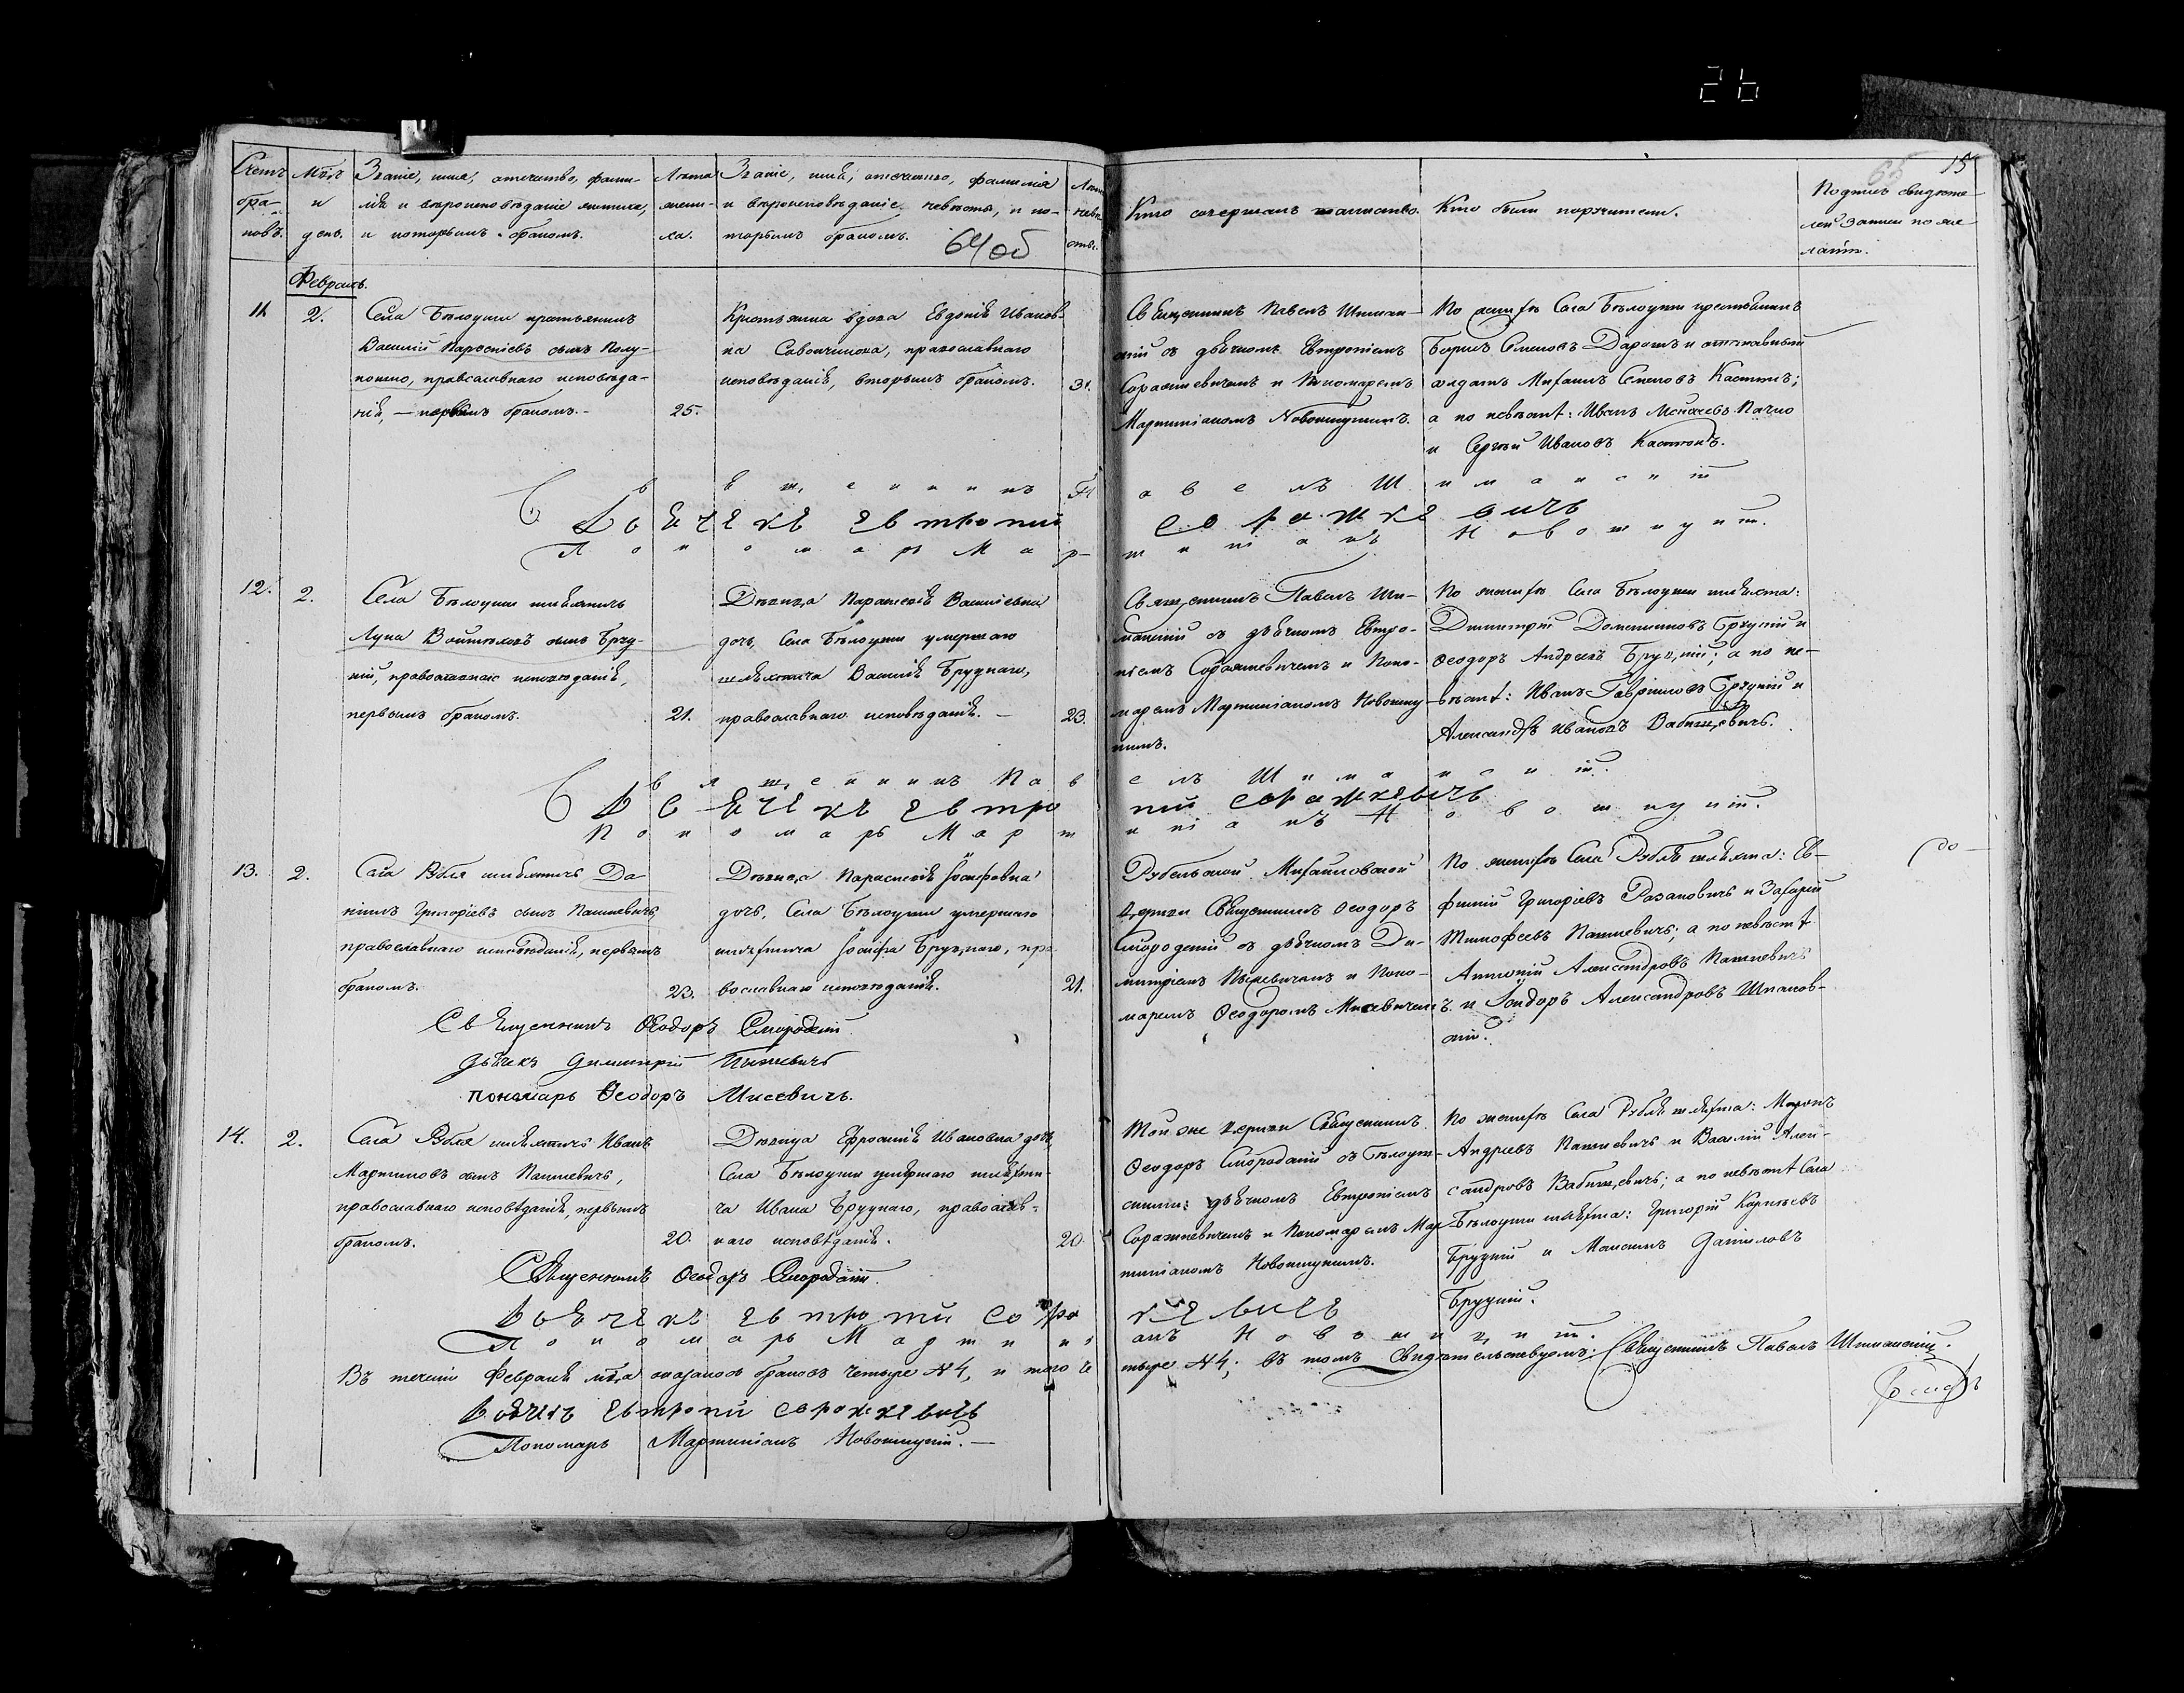 26
15
65
Счетъ браковъ.
Мѣс. и день.
Званіе, имя, отечество, фами-
лія и вѣроисповѣданіе жениха,
и которымъ бракомъ.
Лѣта
жени-
ха.
Званіе, имя, отечество, фамилія
и вѣроисповѣданіе невѣсты, и ко-
торымъ бракомъ.
64об
Лѣта
невѣ-
сты.
Кто совершалъ таинство.
Кто были поручители.
Подпись свидѣте-
лей записи по же-
ланію.
Февраль.
11
2.
Села Бѣлоуши крестьянинъ
Василій сынъ Полу-
православнаго исповѣда-
нія, — первымъ бракомъ. —
25.
Крестьянка вдова Евдокія Иванов-
на православнаго
исповѣданія, вторымъ бракомъ.
31.
Священникъ Павелъ Шиман-
скій съ дьячкомъ Евтропіемъ
Соражкевичемъ и Пономаремъ
Мартиніаномъ Новоишуцкимъ.
По женихѣ Села Бѣлоуши крестьянинъ
Борисъ Семеновъ и отставный
солдатъ Михаилъ Семеновъ
а по невѣстѣ: Иванъ
и Сергій Ивановъ
Священникъ Павелъ Шиманскій
Дьячекъ Евтропій Соражкевичъ
Пономарь Мартиніанъ
12.
2.
Села Бѣлоуши шляхтичъ
Лука сынъ Бруц-
кій, православнаго исповѣданія,
первымъ бракомъ.
21.
Дѣвица Параскевія Васильевна
дочь, Села Бѣлоуши умершаго
шляхтича Василія Бруцкаго,
православнаго исповѣданія. —
23.
Священникъ Павелъ Ши-
манскій съ дьячкомъ Евтро-
піемъ Соражкевичемъ и Поно-
маремъ Мартиніаномъ
кимъ.
По женихѣ Села Бѣлоуши шляхта:
Димитрій Бруцкій и
Ѳеодоръ Андреевъ Бруцкій; а по не-
вѣстѣ: Иванъ Гавріиловъ Бруцкій и
Александръ Ивановъ Вабищевичъ.
Священникъ Павелъ Шиманскій.
Дьячекъ Евтропій Соражкевичъ
Пономарь Мартиніанъ
13.
2.
Села Рубля шляхтичъ Да-
ніилъ Григоріевъ сынъ Пашкевичъ,
православнаго исповѣданія, первымъ
бракомъ.
23.
Дѣвица Параскевія Іосифовна
дочь, Села Бѣлоуши умершаго
шляхтича Іосифа Бруцкаго, пра-
вославнаго исповѣданія.
21.
Рубельской Михайловской
Церкви Священникъ Ѳеодоръ
Смородскій съ дьячкомъ Ди-
митріемъ и Поно-
маремъ Ѳеодоромъ Мисевичемъ
По женихѣ Села Рубля шляхта: Ев-
фимій Григоріевъ и Захарій
Тимофеевъ Пашкевичъ; а по невѣстѣ
Антоній Александровъ Пашкевичъ
и Александровъ Шпаков-
скій.
Священникъ Ѳеодоръ Смородскій
дьячекъ Димитрій
пономарь Ѳеодоръ Мисевичъ.
14.
2.
Села Рубля шляхтичъ Иванъ
Мартиновъ сынъ Пашкевичъ,
православнаго исповѣданія, первымъ
бракомъ.
20.
Дѣвица Ефросинія Ивановна дочь,
Села Бѣлоуши умершаго шляхти-
ча Ивана Бруцкаго, православ-
наго исповѣданія.
20
Той же церкви Священникъ
Ѳеодоръ Смородскій съ Бѣлоуш-
скими: дьячкомъ Евтропіемъ
Соражкевичемъ и Пономаремъ Мар-
тиніаномъ
По женихѣ Села Рубля шляхта: Миронъ
Андреевъ Пашкевичъ и Василій Алек-
сандровъ Вабищевичъ; а по невѣстѣ Села
Бѣлоуши шляхта: Григорій
Бруцкій и Максимъ Даниловъ
Бруцкій.
Священникъ Ѳеодоръ Смородскій.
Дьячекъ Евтропій Соражкевичъ
Пономарь Мартиніанъ
Въ теченіи Февраля мѣсяца браковъ четыре №4, и того че
тыре №4; въ томъ свидѣтельствуемъ: Священникъ Павелъ Шиманскій.
Дьячекъ Евтропій Соражкевичъ
Пономарь Мартиніанъ